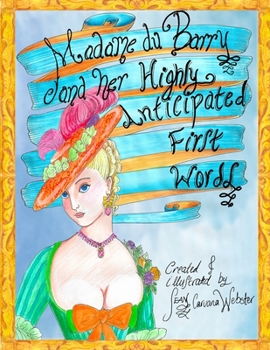 Madame du Barry
and her Highly
Anticipated
First
Words
Created &
illustrated by
Sean Caruana Webster